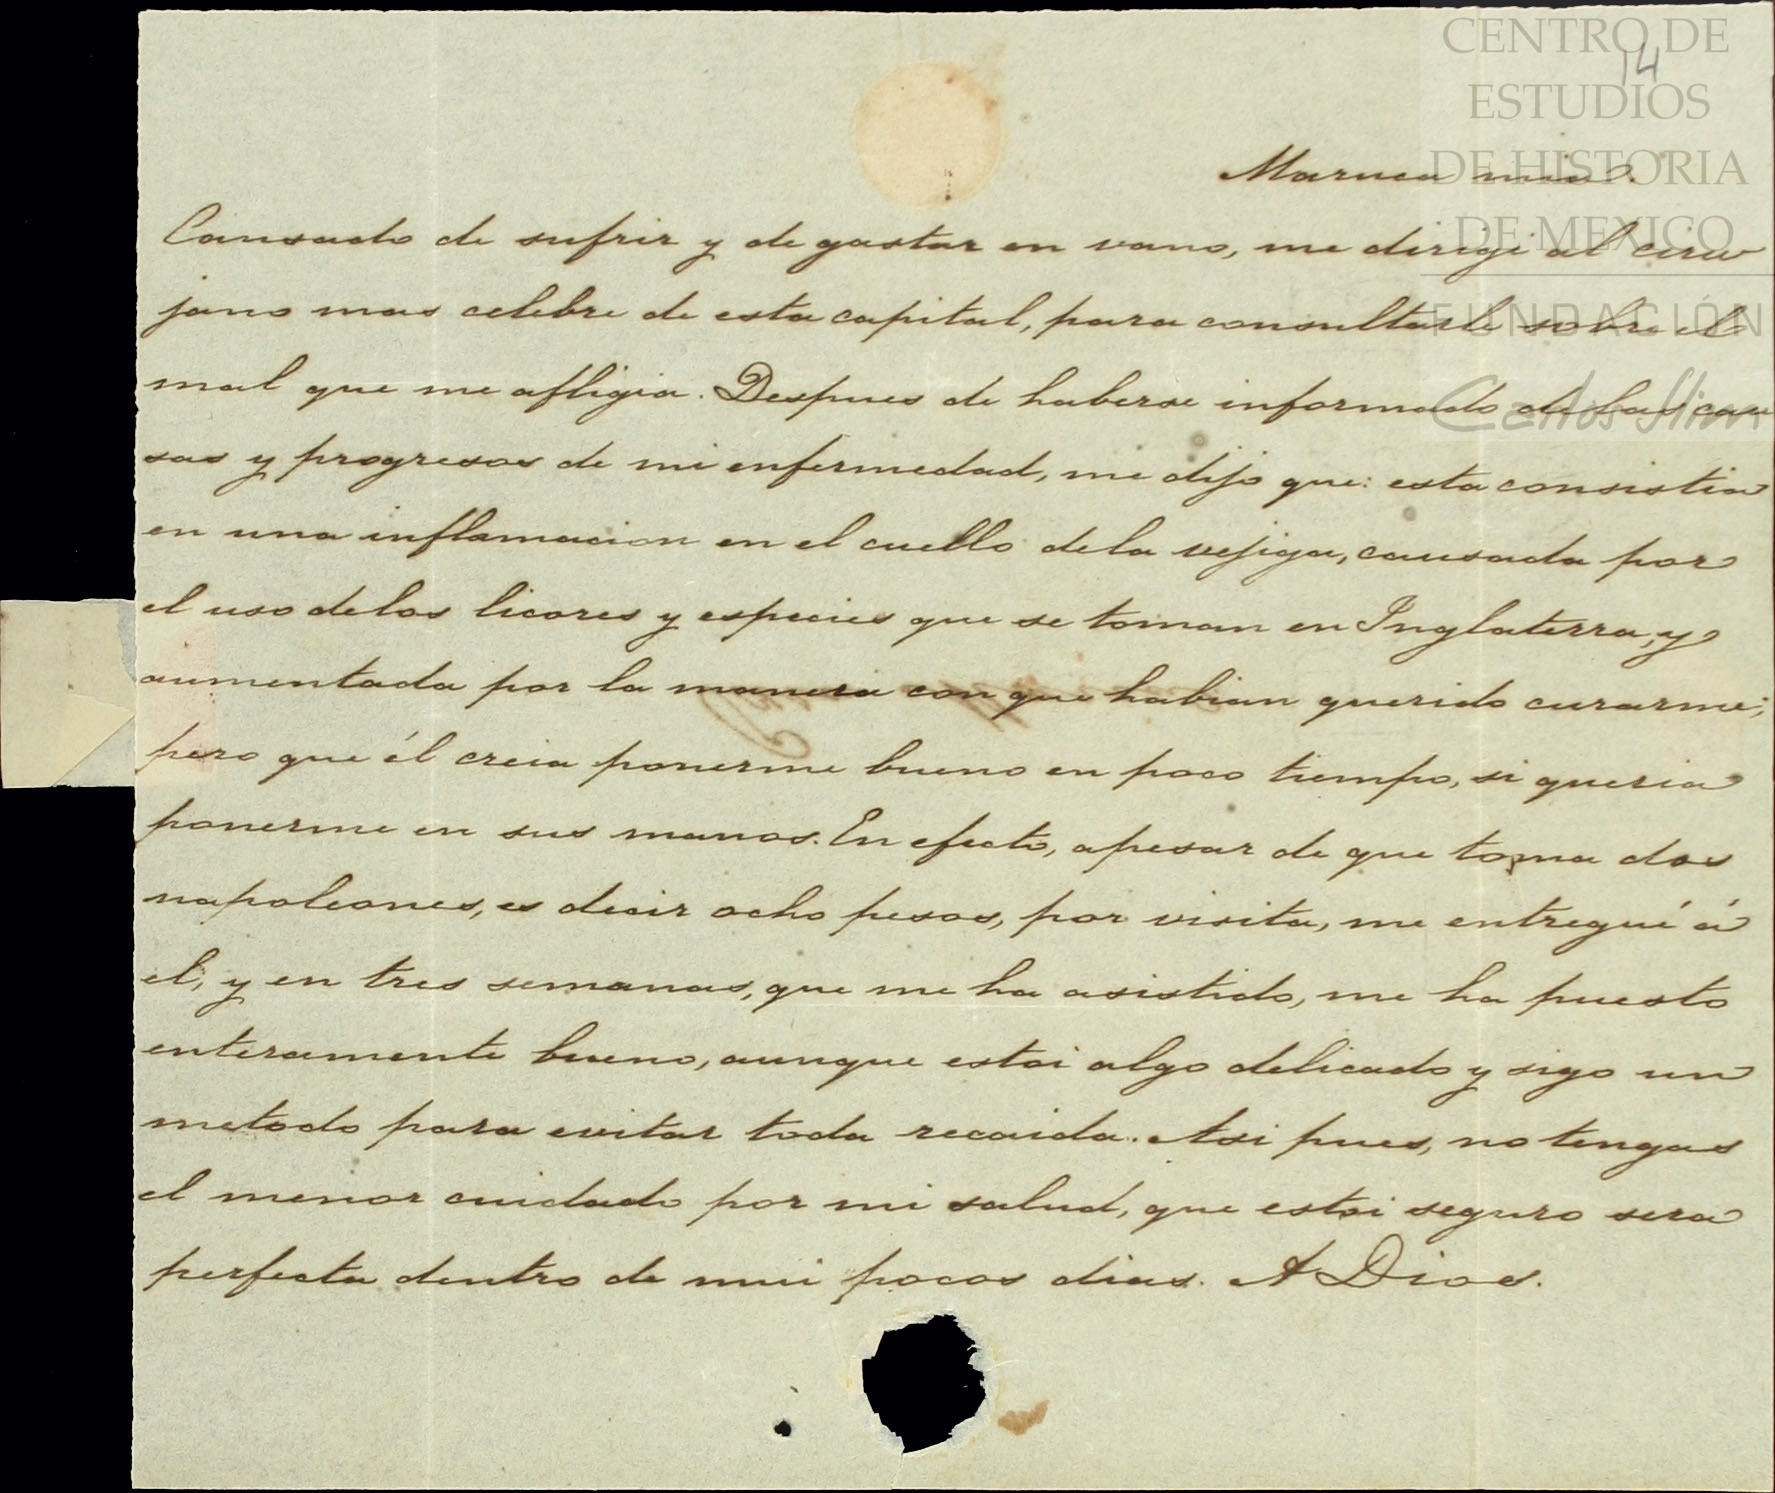 CENTRO DE
14
ESTUDIOS
DE HISTORIA
DE MEXICO
FUNDACIÓN
Carlos Slim
Maruca mia.
Cansado de sufrir y de gastar en vano, me dirigi al ciru
jano mas celebre de esta capital, para consultarle sobre el
mal que me afligia. Despues de haberse informado de las cau
sas y progresos de mi enfermedad, me dijo que: esta consistia
en una inflamacion en el cuello de la vejiga, causada por
el uso de los licores y especies que se toman en Inglaterra, y
aumentada por la manera con que habian querido curarme;
pero que él creia ponerme bueno en poco tiempo, si queria
ponerme en sus manos. En efecto, apesar de que toma dos
napoleones, es decir ocho pesos, por visita, me entregué á
el, y en tres semanas, que me ha asistido, me ha puesto
enteramente bueno, aunque estoi algo delicado y sigo un
metodo para evitar toda recaida. Asi pues, no tengas
el menor cuidado por mi salud, que estoi seguro sera
perfecta dentro de mui pocos dias. A Dios.